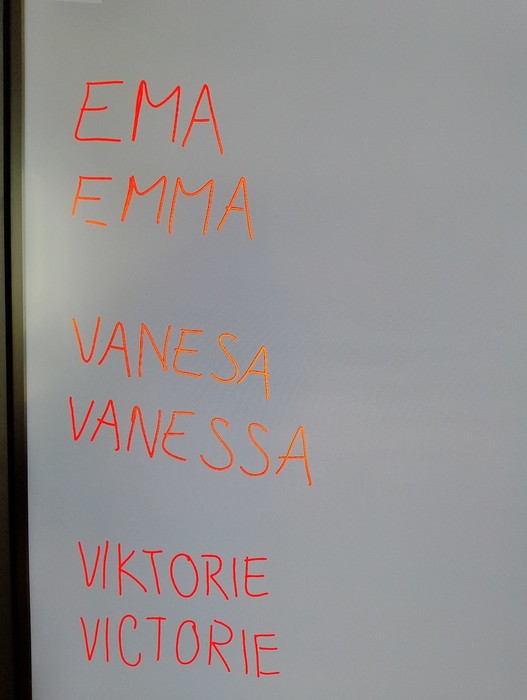 EMA
EMMA
VANESA
VANESSA
VIKTORIE
VICTORIE